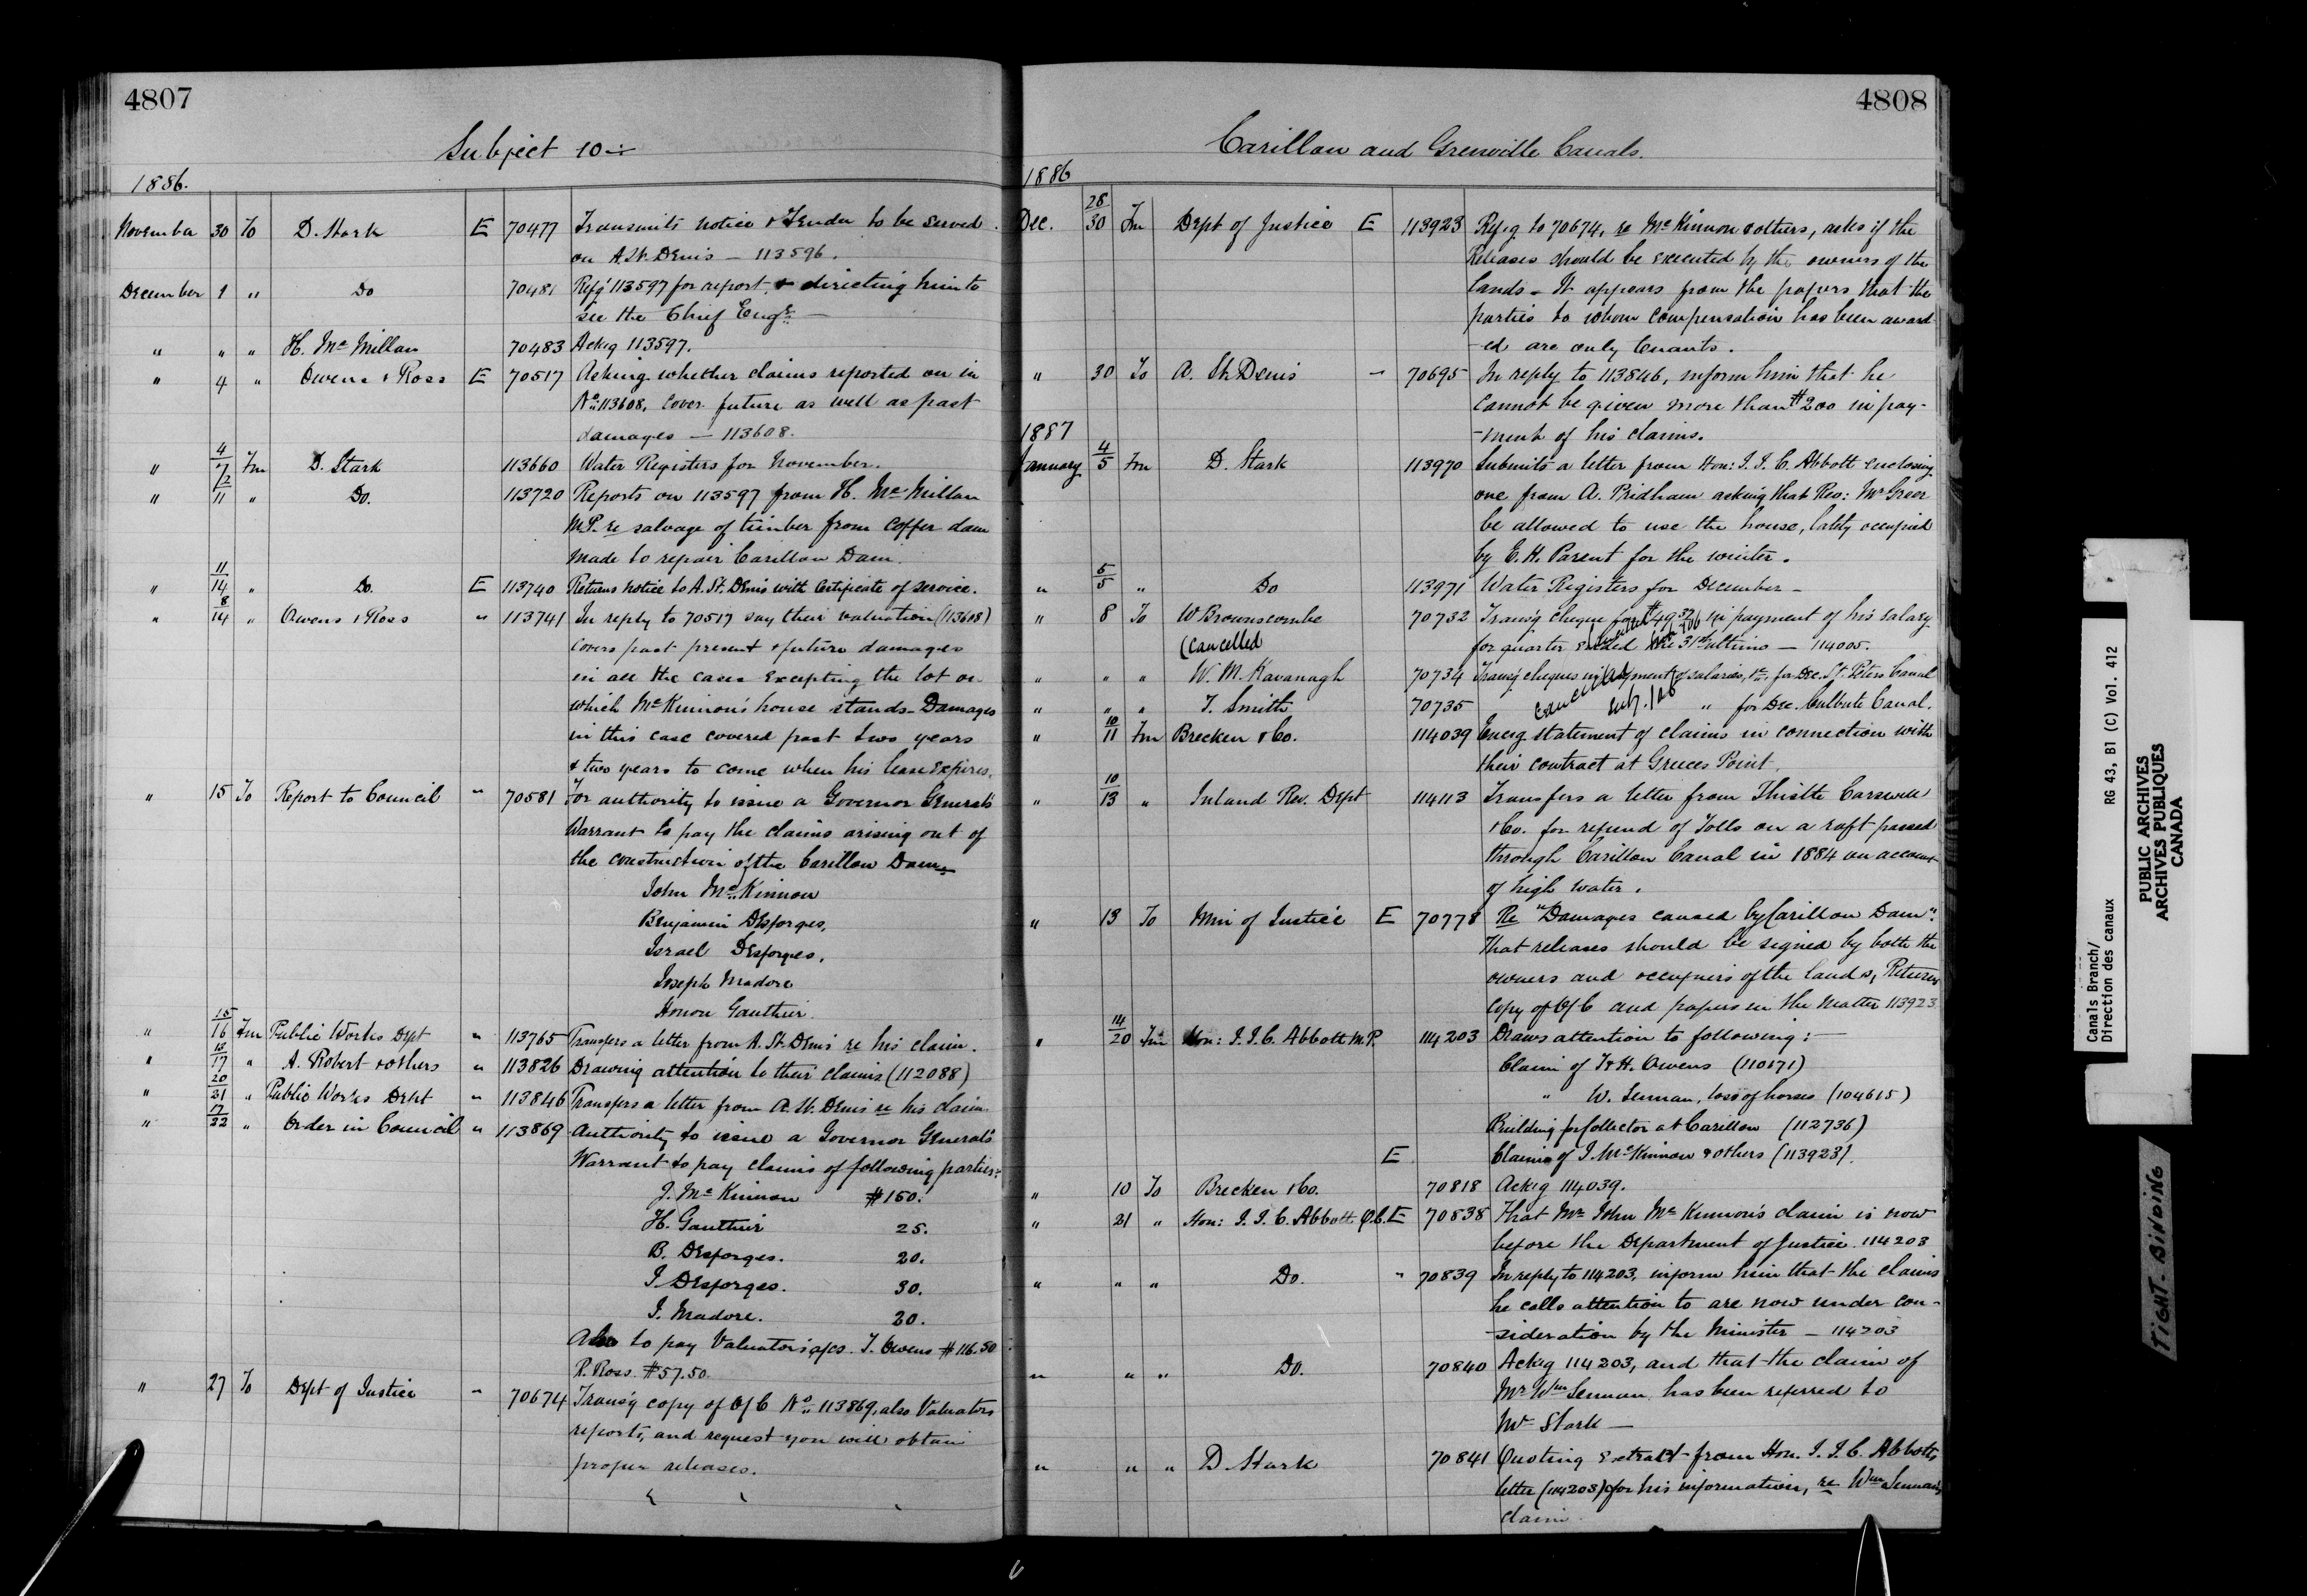 4807
Subject 10
1886.
November 30 To D. Stark E 70477 Transmits notice & Tender to be served
on A. St. Denis — 113596.
December 1 " " Do 70481 Refg 113597 for report & directing him to
see the Chief Engr. —
" " " H. McMillan 70483 Ackg 113597.
" 4 " Owens & Ross E 70517 Asking whether claims reported on in
No. 113608, cover future as well as past
damages — 113608.
" 4/7 Fm D. Stark 113660 Water Registers for November.
" 7/11 " Do. 113720 Reports on 113597 from H. McMillan
M.P. re salvage of timber from Coffer dam
made to repair Carillon Dam.
" 11/14 " Do. E 113740 Returns notice to A. St. Denis with Certificate of service.
" 8/14 " Owens & Ross " 113741 In reply to 70517 say their valuation (113608)
covers past present & future damages
in all the cases excepting the lot on
which McKinnon's house stands - Damages
in this case covered past two years
& two years to come when his lease expires.
" 15 To Report to Council " 70581 For authority to issue a Governor General's
Warrant to pay the claims arising out of
the construction of the Carillon Dam
John McKinnon
Benjamin Desforges,
Israel Desforges,
Joseph Madore
Honon Gauthier
" 15/16 Fm Public Works Dept " 113765 Transfers a letter from A. St. Denis re his claim.
" 13/17 " A. Robert & others " 113826 Drawing attention to their claims (112088)
" 20/21 " Public Works Dept " 113846 Transfers a letter from A. St. Denis re his claim
" 17/22 " Order in Council " 113869 Authority to issue a Governor General's
Warrant to pay claims of following parties:
J. McKinnon $150.
H. Gauthier 25.
B. Desforges. 20.
I. Desforges. 30.
J. Madore. 20.
Also to pay Valuators a/cs. T. Owens $116.50
R. Ross $57.50.
" 27 To Dept of Justice " 70674 Transg copy of O/C No. 113869, also Valuators
reports, and request you will obtain
proper releases.
4808
Carillon and Grenville Canals.
1886
Dec. 28/30 Fm Dept of Justice E 113923 Refg to 70674, re McKinnon & others, asks if the
Releases should be executed by the owners of the
lands - It appears from the papers that the
parties to whom compensation has been award-
-ed are only tenants.
" 30 To A. St. Denis " 70695 In reply to 113846, inform him that he
cannot be given more than $200 in pay-
-ment of his claims.
1887
January 4/5 Fm D. Stark 113970 Submits a letter from Hon: J. J. C. Abbott enclosing
one from A. Pridham asking that Rev: Mr Greer
be allowed to use the house, lately occupied
by E. H. Parent for the winter.
" 5/5 " Do 113971 Water Registers for December -
" 8 To W Brownscombe 70732 Transg cheque for $49.32 in payment of his salary
(Cancelled for quarter ended the 31st ultimo — 114005.
" " " W. M. Kavanagh 70734 Transg cheques in payment of salaries, &c., for Dec. St. Peters Canal
" " " T. Smith 70735 Cancelled sub. 106 " for Dec. Culbute Canal.
" 10/11 Fm Brecken & Co. 114039 Encg statement of claims in connection with
their contract at Greeces Point.
" 10/13 " Inland Rev. Dept 114113 Transfers a letter from Thistle Carswell
& Co. for refund of Tolls on a raft passed
through Carillon Canal in 1884 on account
of high water.
" 13 To Min of Justice E 70778 Re "Damages caused by Carillon Dam"
That releases should be signed by both the
owners and occupiers of the lands, Returns
copy of O/C and papers in the matter 113923
" 14/20 Fm Hon: J. J. C. Abbott M.P. 114203 Draws attention to following: —
Claim of T & H. Owens (110571)
" W. Lennan, loss of horses (104615)
Building for Collector at Carillon (112736)
E Claims of J. McKinnon & others (113923).
" 10 To Brecken & Co. 70818 Ackg 114039.
" 21 " Hon: J. J. C. Abbott Q.C. E 70838 That Mr John McKinnon's claim is now
before the Department of Justice. 114203
" " " Do. " 70839 In reply to 114203, inform him that the claims
he calls attention to are now under con-
-sideration by the Minister — 114203
" " " Do. 70840 Ackg 114203, and that the claim of
Mr Wm Lennan has been referred to
Mr Stark —
" " " D. Stark 70841 Quoting extract from Hon. J. J. C. Abbott's
letter (114203) for his information, re Wm Lennan's
claim.
Canals Branch/
Direction des canaux RG 43, B1 (C) Vol. 412
PUBLIC ARCHIVES
ARCHIVES PUBLIQUES
CANADA
TIGHT BINDING